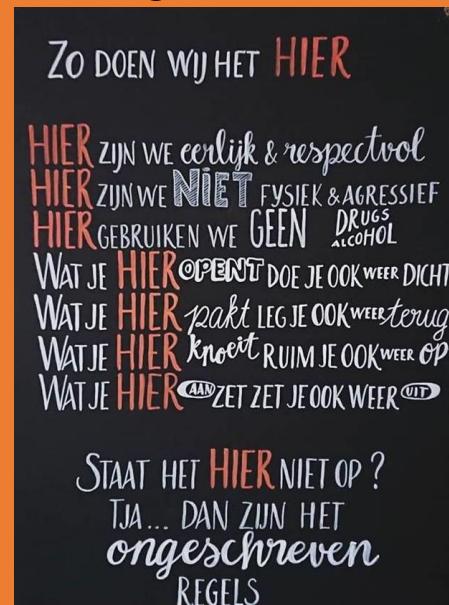 Zo DOEN WIJ HET HIER
HIER ZIJN WE eerlijk & respectvol
HIER ZIJN WE NIET FYSIEK & AGRESSIEF
HIER GEBRUIKEN WE GEEN DRUGS ALCOHOL
WAT JE HIER OPENT DOE JE OOK WEER DICHT
WAT JE HIER pakt LEG JE OOK WEER terug
WAT JE HIER knoeit RUIM JE OOK WEER OP
WAT JE HIER AAN ZET ZET JE OOK WEER UIT
STAAT HET HIER NIET OP?
TJA... DAN ZIJN HET
ongeschreven
REGELS